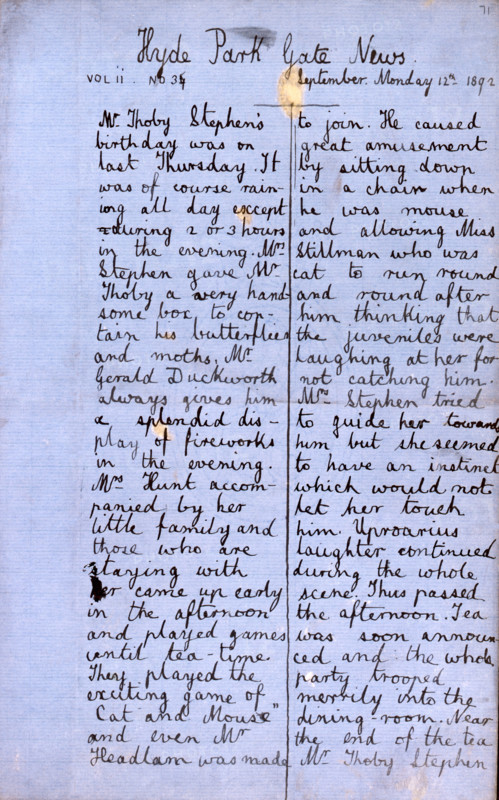 71
Hyde Park Gate News.
VOL ii. NO 35 September. Monday 12th 1892
Mr Thoby Stephen's
birthday was on
last Thursday. It
was of course rain-
ing all day except
during 2 or 3 hours
in the evening. Mrs
Stephen gave Mr
Thoby a very hand
some box to con-
tain his butterflies
and moths. Mr
Gerald Duckworth
always gives him
a splendid dis-
play of fireworks
in the evening.
Mrs Hunt accom-
panied by her
little family and
those who are
staying with
her came up early
in the afternoon
and played games
until tea-time.
They played the
exciting game of
"Cat and Mouse"
and even Mr
Headlam was made
to join. He caused
great amusement
by sitting down
in a chair when
he was mouse
and allowing Miss
Stillman who was
cat to run round
and round after
him thinking that
the juveniles were
laughing at her for
not catching him.
Mrs Stephen tried
to guide her towards
him but she seemed
to have an instinct
which would not
let her touch
him. Uproarius
laughter continued
during the whole
scene. Thus passed
the afternoon. Tea
was soon announ
ced and the whole
party trooped
merrily into the
dining-room. Near
the end of the tea
Mr Thoby Stephen